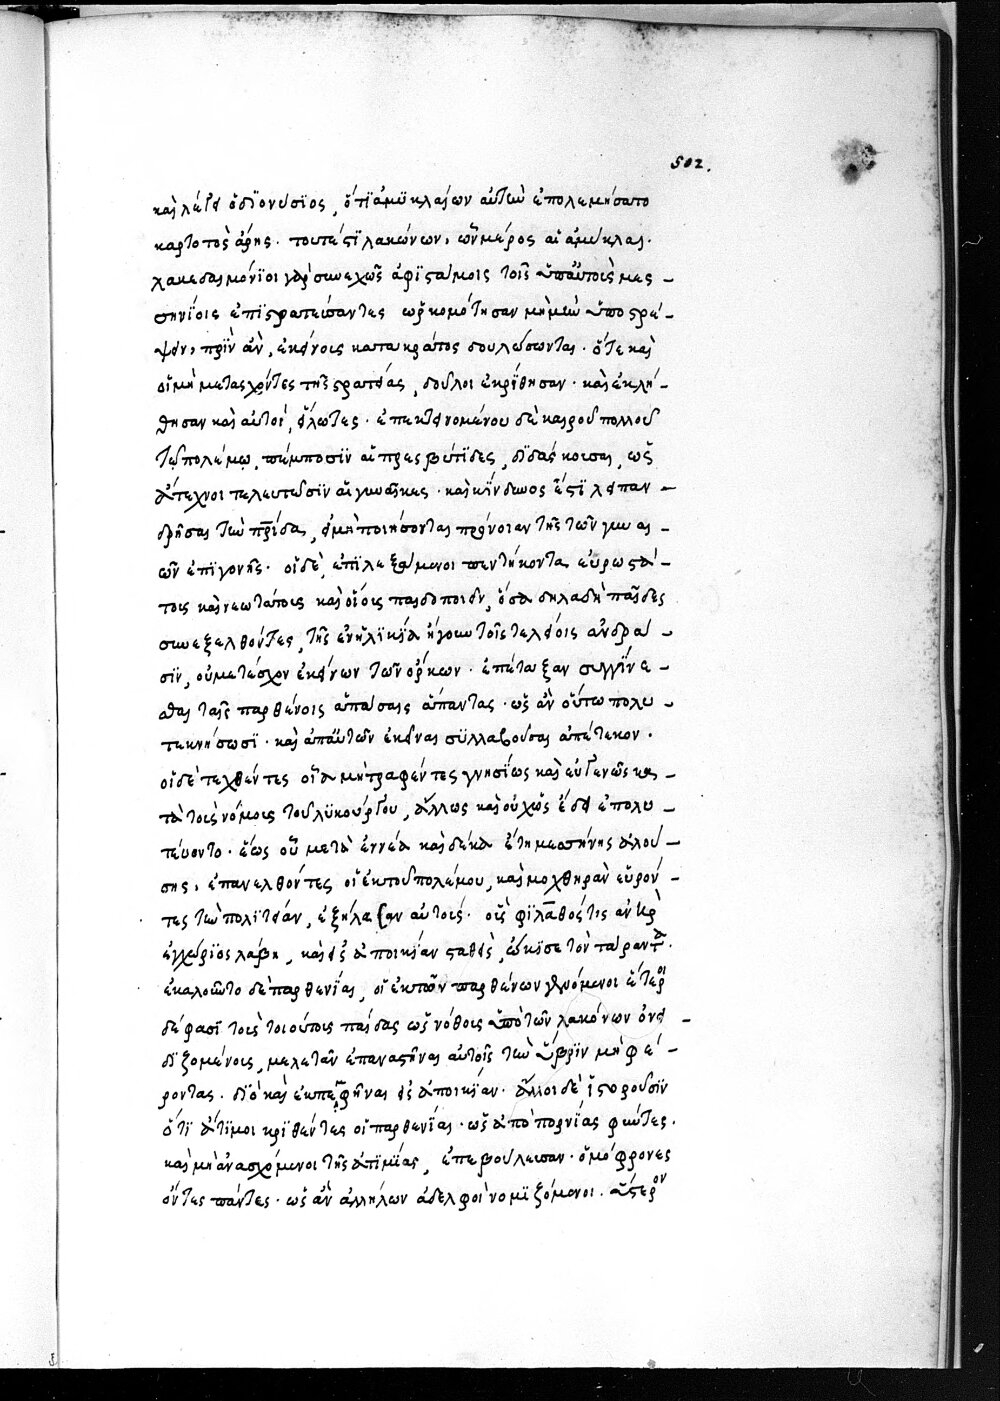 502.
καὶ λέγει ὁ διονύσιος, ὅτι ἀμυκλαίων αὐτῶ ἐπολεμήσατο
καρτὸς ἄρης. τουτέστι λακώνων, ὧν μέρος αἱ ἀμύκλαι.
λακεδαιμόνιοι γὰρ συνεχῶς ἀφισταμένοις τοῖς ὑπ' αὐτοῖς μεσ-
σηνίοις ἐπιστρατεύσαντες ὡρκομότησαν μὴ μὲν ὑποστρέ-
ψειν, πρὶν ἂν, ἐκείνους κατακράτος δουλεύσωνται. ὅτε καὶ
οἱ μὴ μετασχόντες τῆς στρατείας, δοῦλοι ἐκρίθησαν. καὶ ἐκλή-
θησαν καὶ αὐτοὶ, εἵλωτες. ἐπεκτεινομένου δὲ καιροῦ πολλοῦ
τῷ πολέμῳ, πέμπουσιν αἱ πρεσβύτιδες, διδάσκουσαι, ὡς
ἄτεκνοι τελευτῶσιν αἱ γυναῖκες. καὶ κίνδυνος ἐστὶ λειπαν-
δρῆσαι τὴν πρίδα, εἰ μὴ ποιήσονται πρόνοιαν τῆς τῶν γυναι-
ῶν ἐπιγονῆς. οἱ δὲ, ἐπιλεξάμενοι πεντήκοντα εὐρωστά-
τοις καὶ νεωτάτοις καὶ οἵοις παιδοποιεῖν, ὅσα δηλαδὴ παῖδες
συνεξελθόντες, τῆς ἐνηλικία ἤγουν τοῖς τελείοις ἀνδρά-
σιν, οὐ μετάσχον ἐκείνων τῶν ὅρκων. ἐπέταξαν συγγίνε-
σθαι ταῖς παρθένοις ἁπάσαις ἅπαντας. ὡς ἂν οὕτω πολυ-
τεκνήσωσι. καὶ ἀπ' αὐτῶν ἐκεῖναι συλλαβοῦσαι ἀπέτεκον.
οἱ δὲ τεχθέντες οἷα μὴ τραφέντες γνησίως καὶ εὐγενῶς κα-
τὰ τοὺς νόμοις τοῦ λυκούργου, ἄλλως καὶ οὐχ ὡς ἔδει ἐπολι-
τεύοντο. ἕως οὗ μετὰ ἐννέα καὶ δέκα ἔτη μεσήνης ἁλού-
σης, ἐπανελθόντες οἱ ἐκ τοῦ πολέμου, καὶ μοχθηρὰν εὑρόν-
τες τὴν πολιτείαν, ἐξήλασαν αὐτοὺς. οἷς φίλανθός τις ἀνὴρ
ἐγχώριος λάβη, καὶ εἰς ἀποικίαν σταθεὶς, ὤκισε τὸν τάραντα.
ἐκαλοῦντο δὲ παρθενίαι, οἱ ἐκ τῶν παρθένων γενόμενοι ἕτεροι
δέ φασι τοὺς τοιούτοις παῖδας ὡς νόθοις ὑπὸ τῶν λακόνων ὀνει-
διζομένοις, μελετᾶν ἐπαναστῆναι αὐτοῖς τὴν ὕβριν μὴ φέ-
ροντας. διὸ καὶ ἐκπεμφθῆναι εἰς ἀποικίαν. ἄλλοι δὲ ἱστοροῦσιν
ὅτι ἄτιμοι κριθέντες οἱ παρθενίαι. ὡς ἀπὸ πορνείας φύντες.
καὶ μὴ ἀνασχόμενοι τῆς ἀτιμίας, ἐπεβούλευσαν. ὁμόφρονες
ὄντες πάντες. ὡς ἂν ἀλλήλων ἀδελφοὶ νομιζόμενοι. ὕστερον